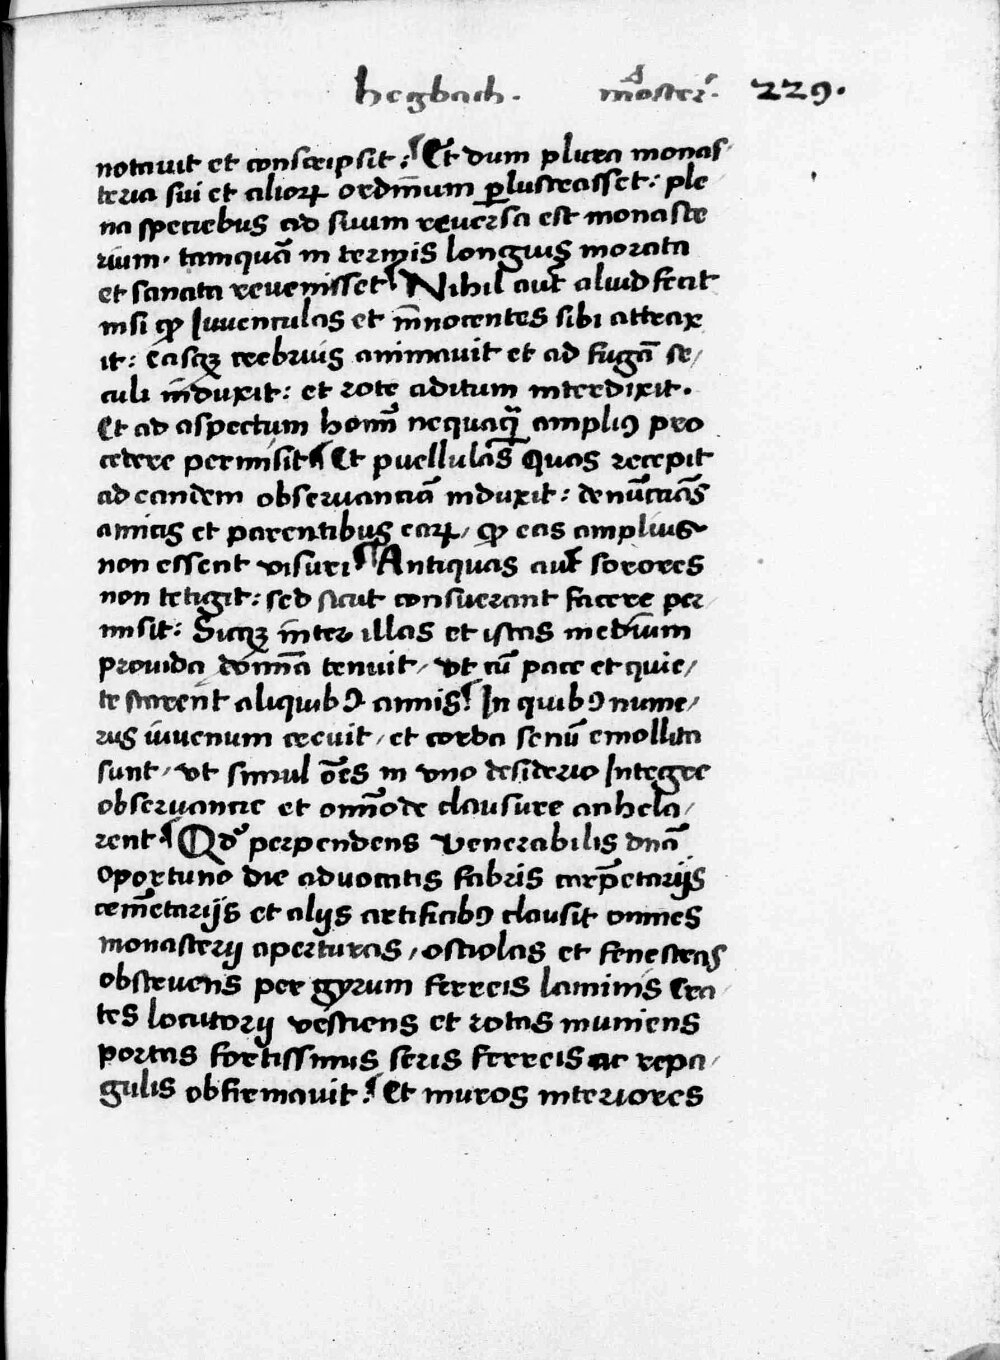 hegbach. mōster̄. 229.
notauit et conscripsit: Et dum plura monas-
teria sui et alioꝝ ordinum ꝑlustrasset: ple
na speciebus ad suum reuersa est monaste
rium. tamquā in termis longius morata
et sanata reuenisset Nihil aut̄ aliud fecit
nisi ꝙ Iuuenculas et īnnocentes sibi attrax
it: Easqꝫ crebrius animauit et ad fugā se/
culi induxit: et rote aditum interdixit.
Et ad aspectum homī nequaq̄ ampliꝰ pro
cedere permisit Et puellulas Quas recepit
ad eandem obseruanciā induxit: denūcciās
amicis et parentibus earꝝ/ ꝙ eas amplius
non essent visuri Antiquas aut̄ sorores
non tetigit: sed sicut consuerant facere per/
misit: Sicqꝫ inter illas et istas medium
prouida domīa tenuit/ vt cū pace et quie/
te starent aliquibꝰ annis In quibꝰ nume/
rus iuuenum creuit/ et corda senū emollita
sunt/ vt simul ōes in vno desiderio Integre
obseruancie et omīode clausure anhela/
rent Qđ perpendens Venerabilis dnā
oportuno die aduocatis fabris carpētarijs
cemētarijs et alijs artificibꝰ clausit omnes
monasterij aperturas/ ostiolas et fenestras
obstruens per gyrum ferreis laminis Cra/
tes locutorij vestiens et rotas muniens
portas fortissimis seris ferreis ac repa/
gulis obfirmauit: Et muros interiores